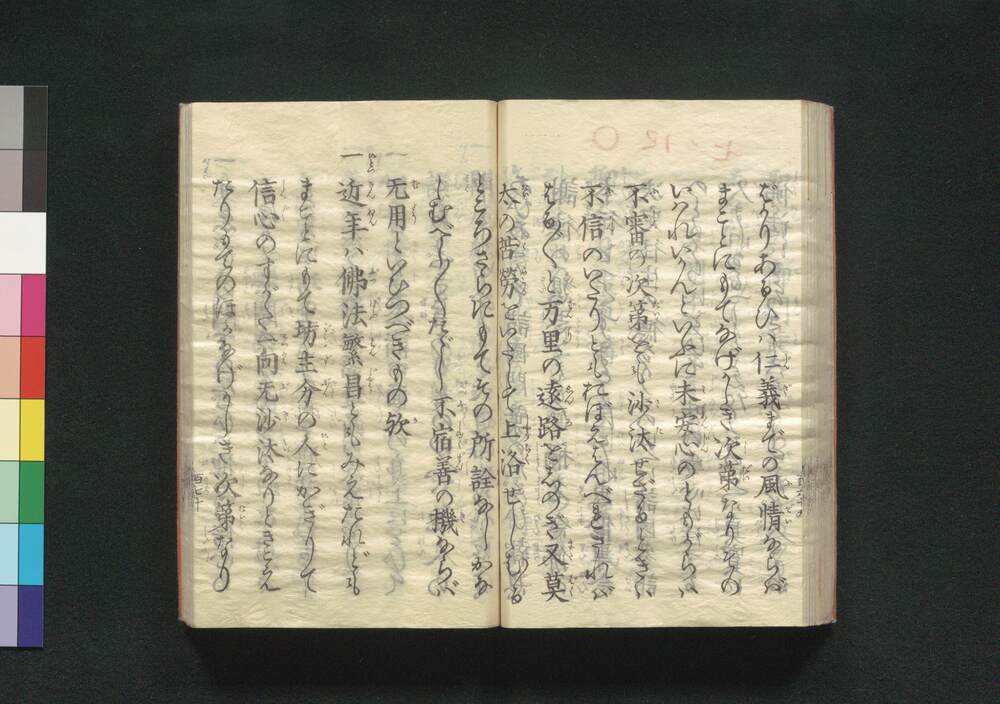 ばかりあるひは仁義までの風情ならば
まことにもてなげかしき次第なりその
いはれいかんといふに未安心のともがらは
不審の次第をも沙汰せざるときは
不信のいたりともおほえはんべれされば
はる〱と万里の遠路をしのぎ又莫
太の苦労をいたして上洛せしむる
ところさらにもてその所詮なしかな
しむべし〱たゞし不宿善の機ならば
无用といひつべきもの欤
一近年ハ佛法繁昌ともみえたれども
まことにもて坊主分の人にかぎりて
信心のすがた一向无沙汰なりときこえ
たりもてのほかなげかしき次第なり
百七十